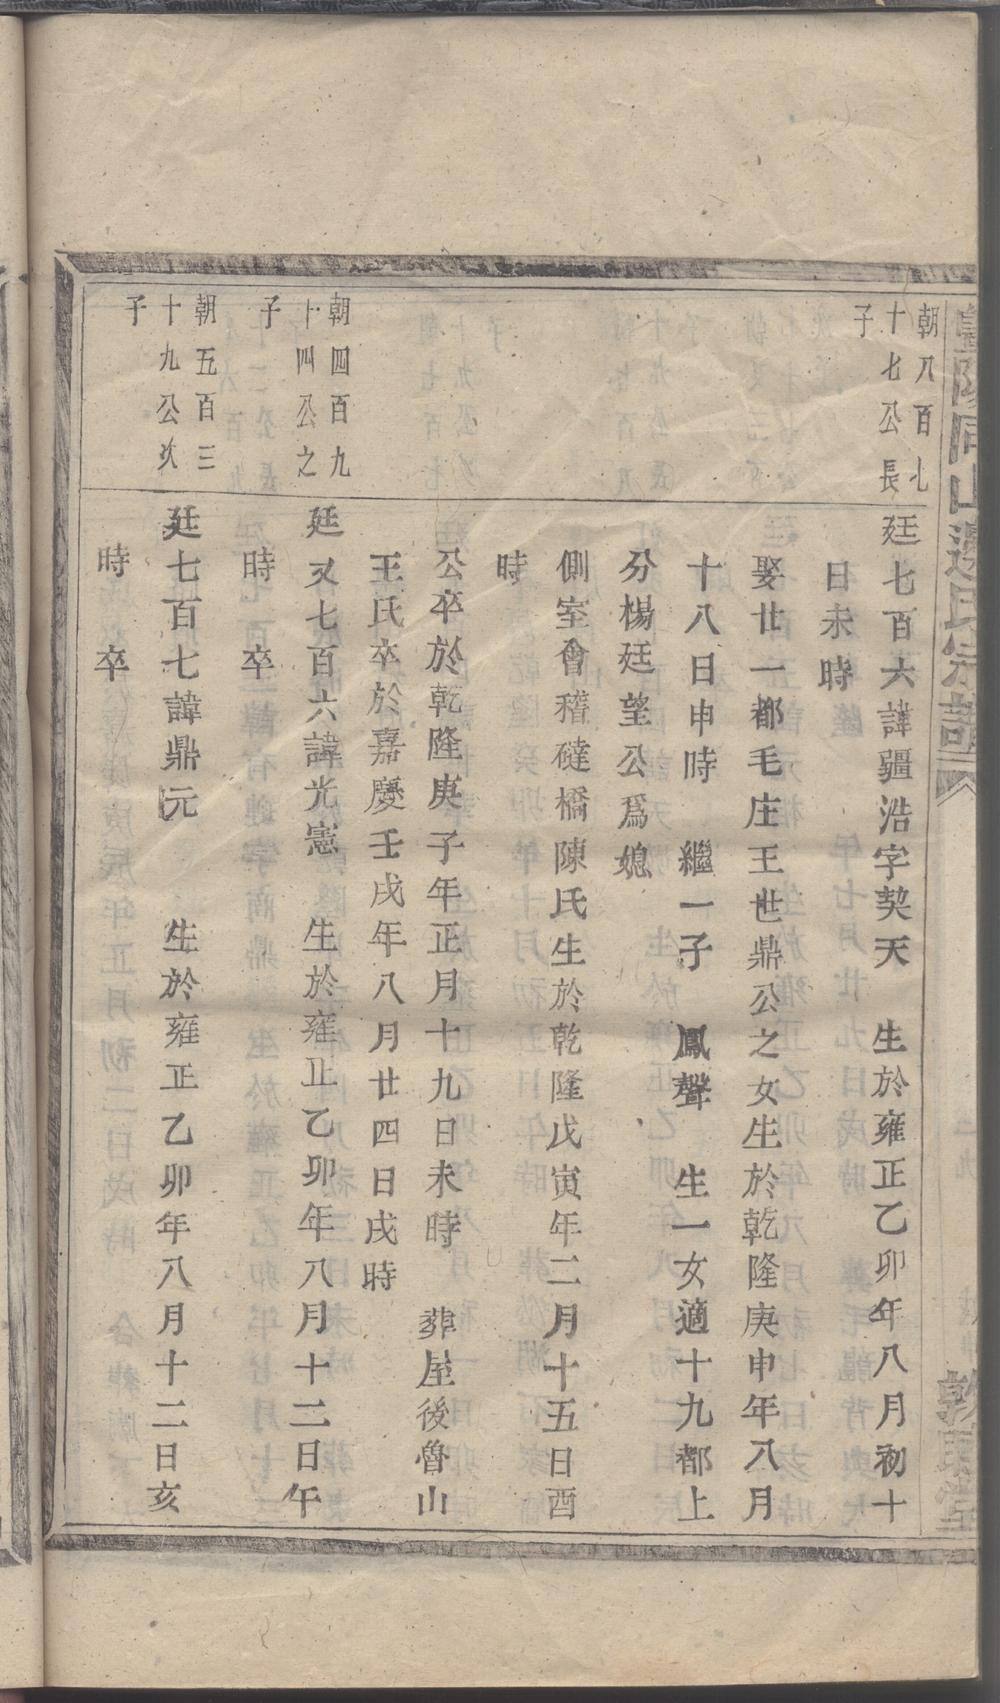 暨陽同山邊氏宗譜
敦睦堂
朝八百七
十七公長
子
廷七百六諱疆浩字契天　生於雍正乙卯年八月初十
日未時
娶廿一都毛庄王世鼎公之女生於乾隆庚申年八月
十八日申時　繼一子　鳳聲　生一女適十九都上
分楊廷望公爲媳
側室會稽䃮橋陳氏生於乾隆戊寅年二月十五日酉
時
公卒於乾隆庚子年正月十九日未時　葬屋後魯山
王氏卒於嘉慶壬戌年八月廿四日戌時
朝四百九
十四公之
子
廷又七百六諱光憲　生於雍正乙卯年八月十二日午
時卒
朝五百三
十九公次
子
廷七百七諱鼎元　生於雍正乙卯年八月十二日亥
時卒